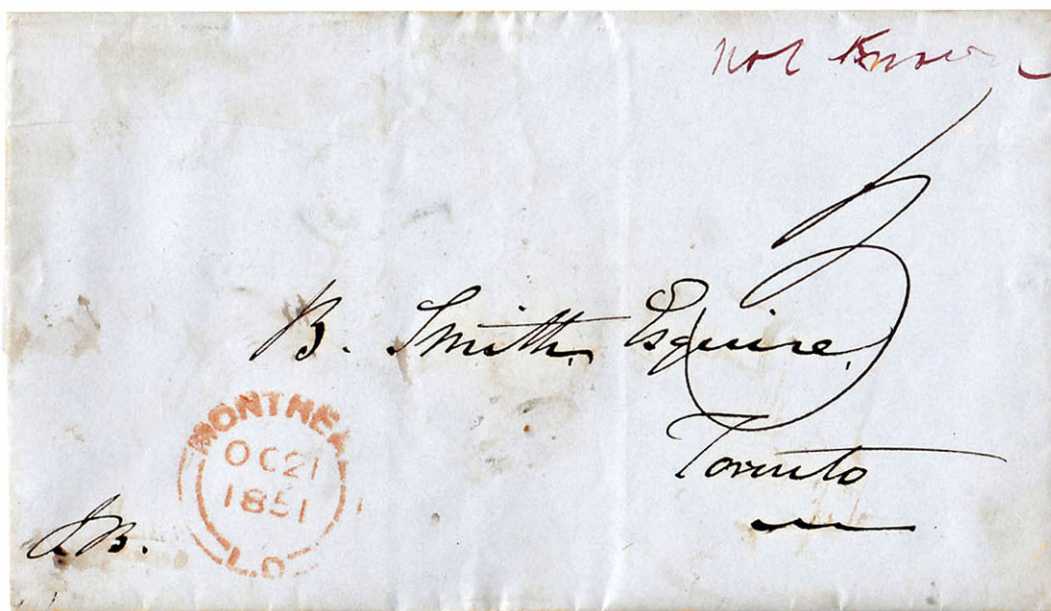 Not Known
3
B. Smith, Esquire,
Toronto
MONTREAL
OC 21
1851
L.C
B.